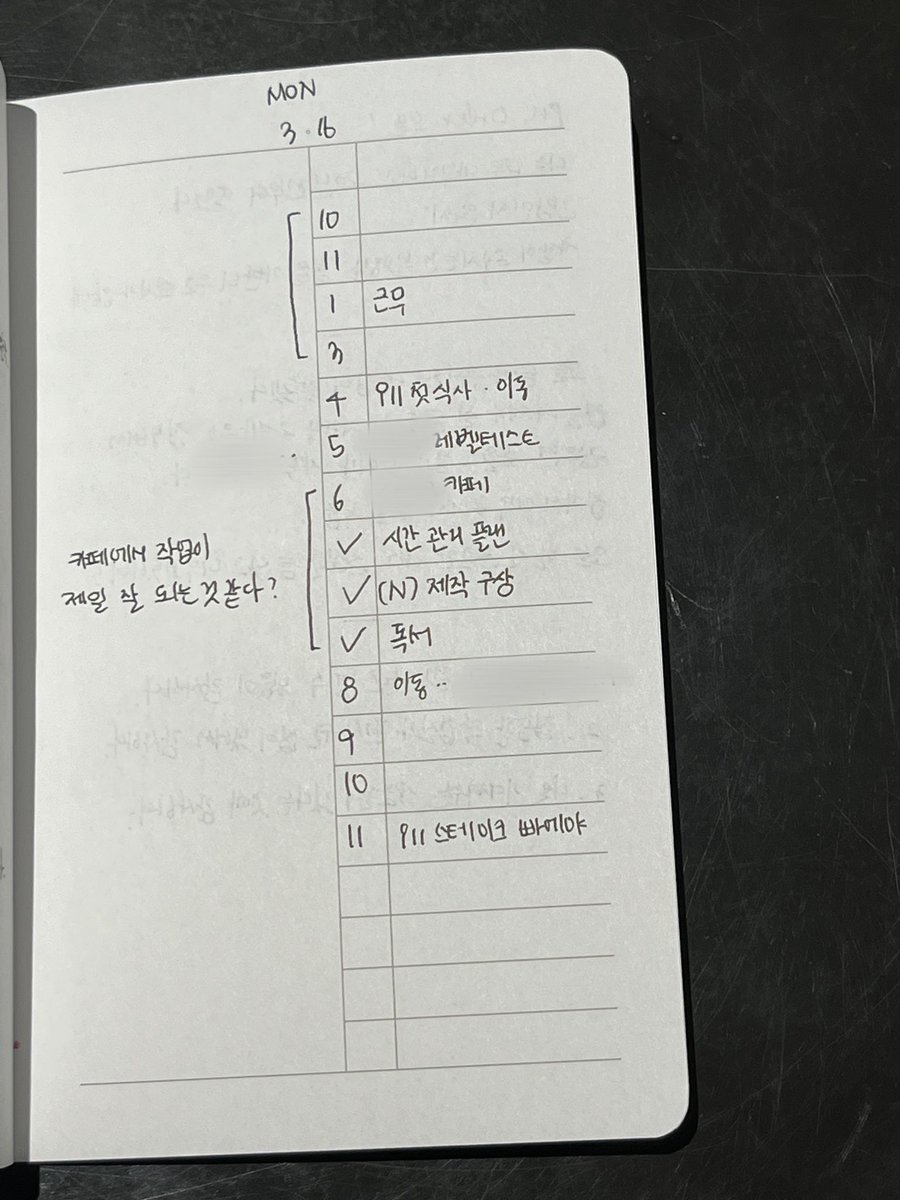 MON
3.16
10
11
1 근무
3
4 첫식사 · 이동
5 레벨테스트
6 카페
✓ 시간 관리 플랜
카페에서 작업이
✓ (N) 제작 구상
제일 잘 되는것 같다?
✓ 독서
8 이동..
9
10
11 스테이크 빠에야